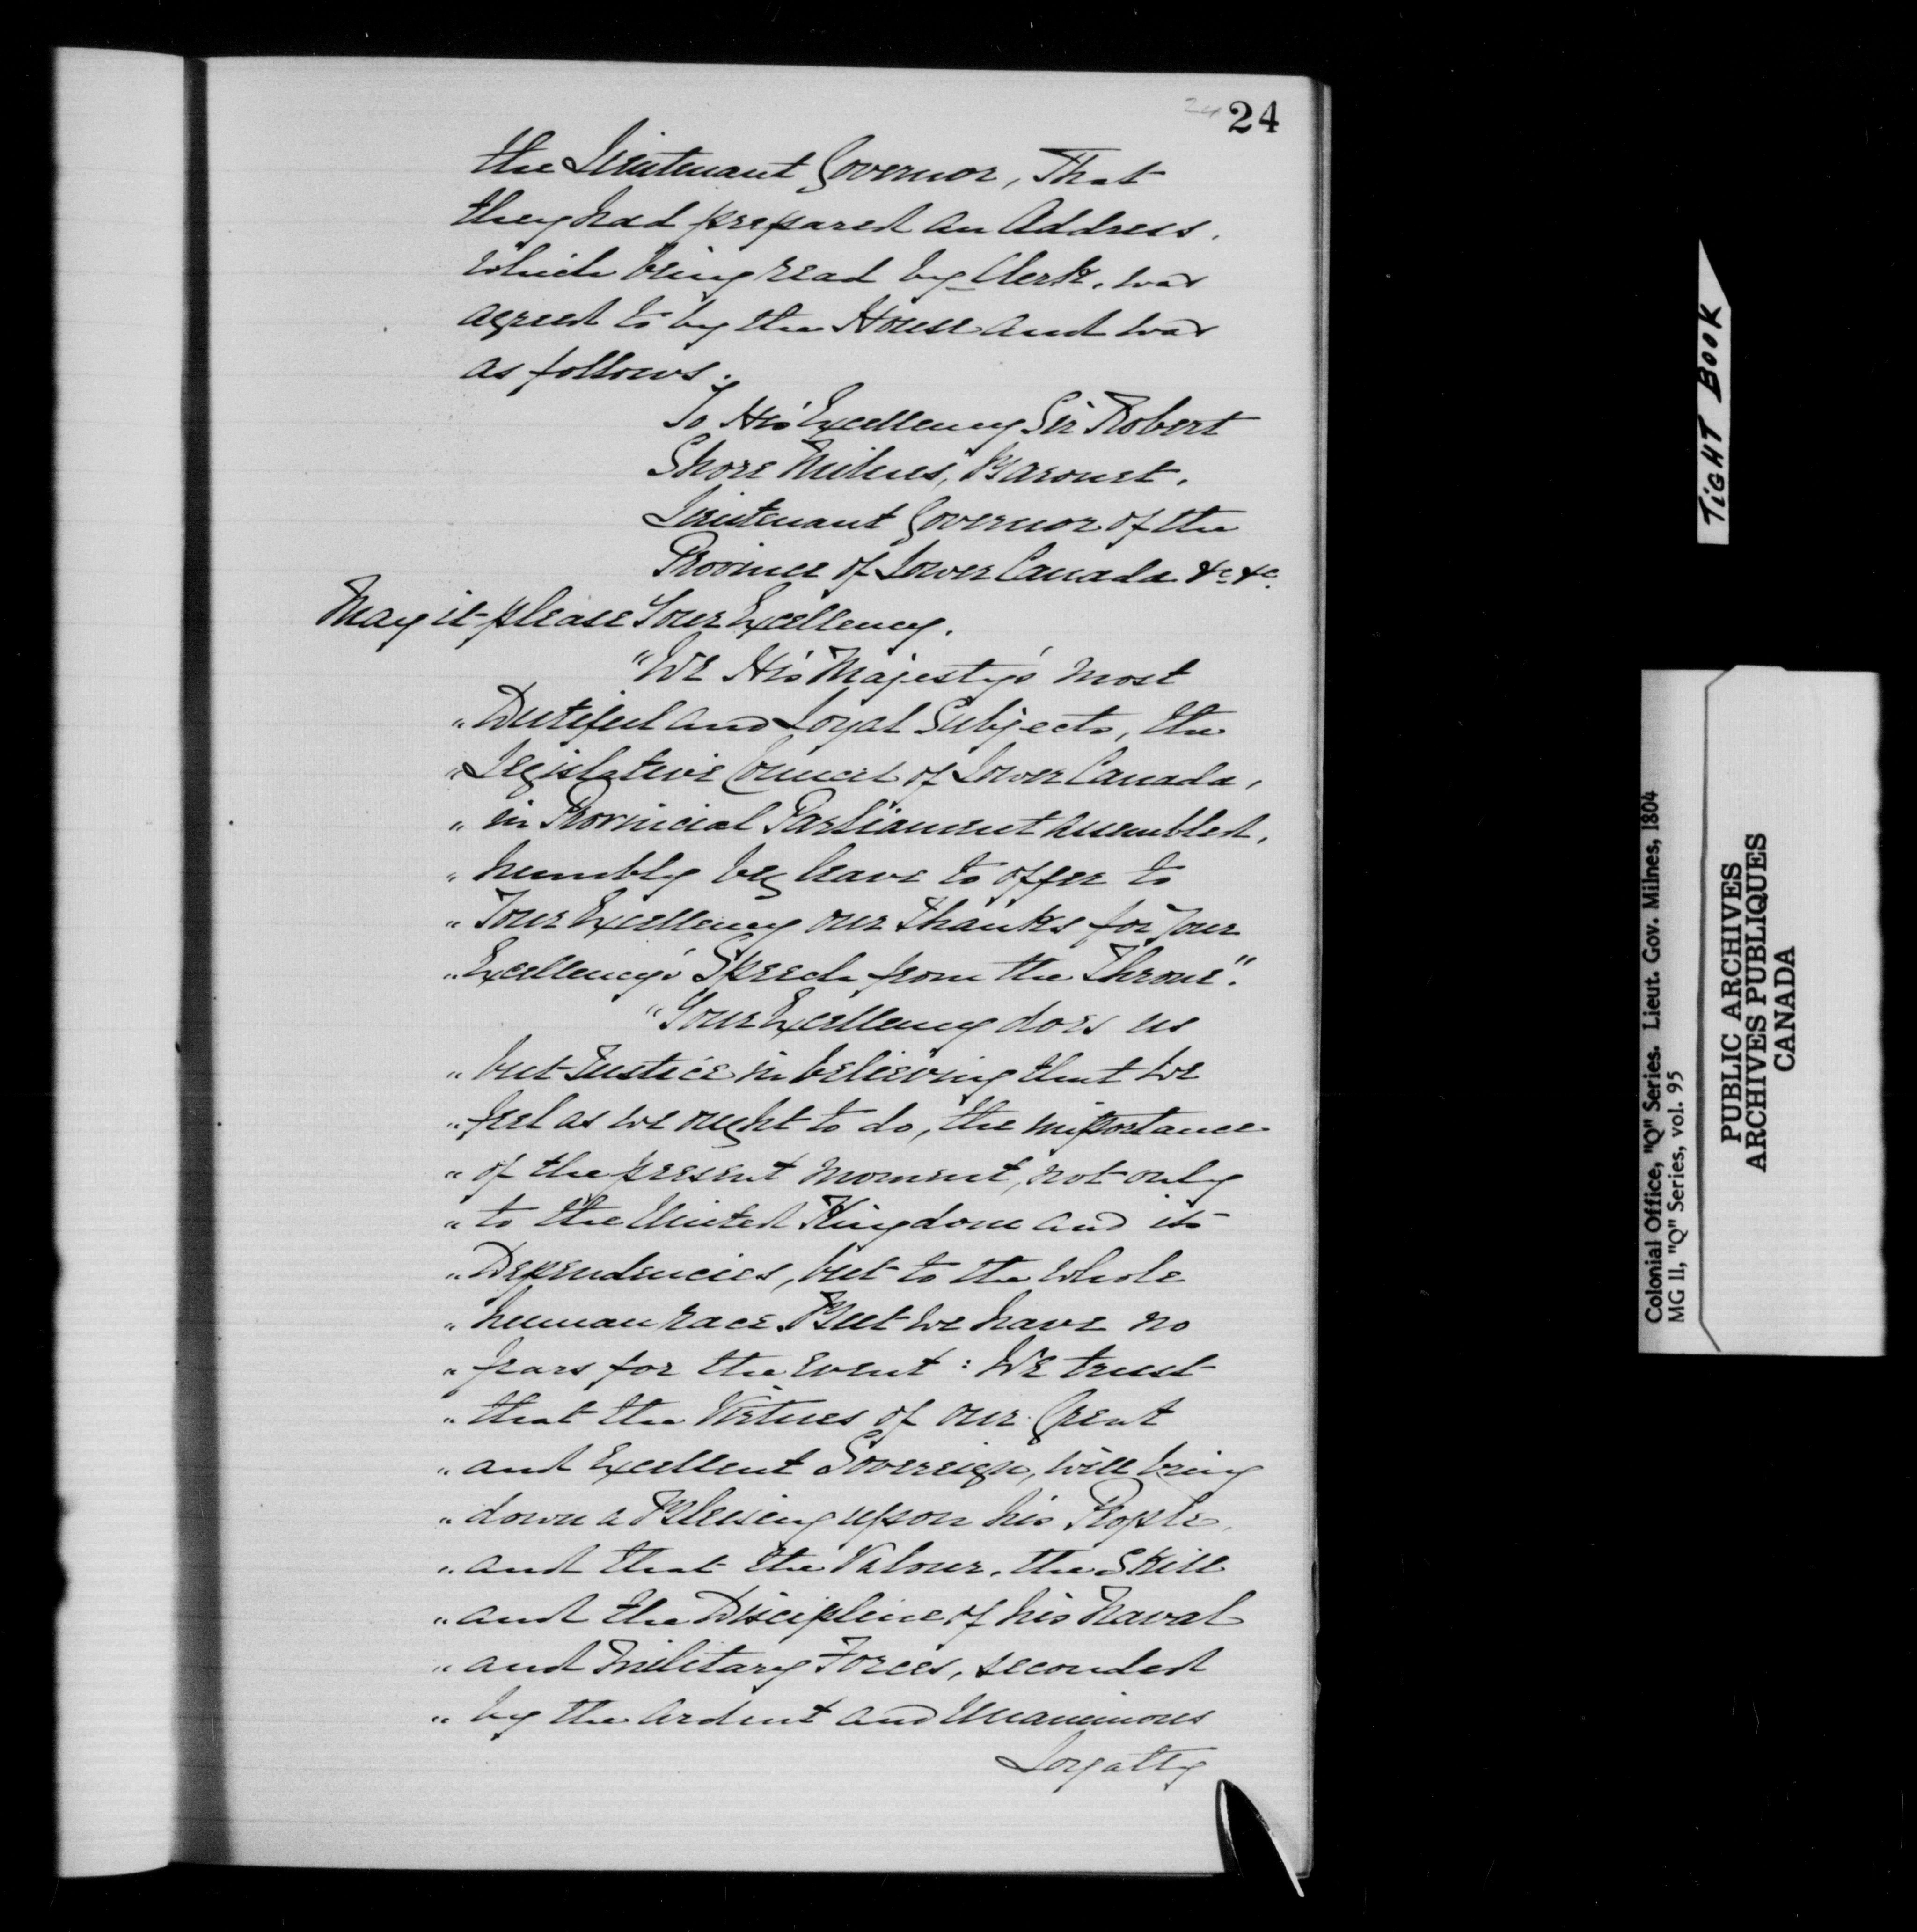 24 24
the Lieutenant Governor, That
they had prepared an Address.
which being read by Clerk, was
agreed to by the House and was
as follows:
To His Excellency Sir Robert
Shore Milnes, Baronet,
Lieutenant Governor of the
Province of Lower Canada &c &c.
May it please Your Excellency.
"We His Majesty's most
" Dutiful and Loyal Subjects, the
" Legislative Council of Lower Canada,
" in Provincial Parliament assembled,
" humbly beg leave to offer to
" Your Excellency our thanks for your
" Excellency's Speech from the Throne".
"Your Excellency does us
" but Justice in believing that we
" feel as we ought to do, the importance
" of the present moment, not only
" to the United Kingdom and its
" Dependencies, but to the whole
" human race. But we have no
" fears for the event: We trust
" that the Virtues of our Great
" and Excellent Sovereign, will bring
" down a Blessing upon his People,
" and that the Valour, the Skill
" and the Discipline of his Naval
" and Military Forces, seconded
" by the ardent and Unanimous
Loyalty
TIGHT BOOK
Colonial Office, "Q" Series. Lieut. Gov. Milnes, 1804
MG 11, "Q" Series, vol. 95
PUBLIC ARCHIVES
ARCHIVES PUBLIQUES
CANADA